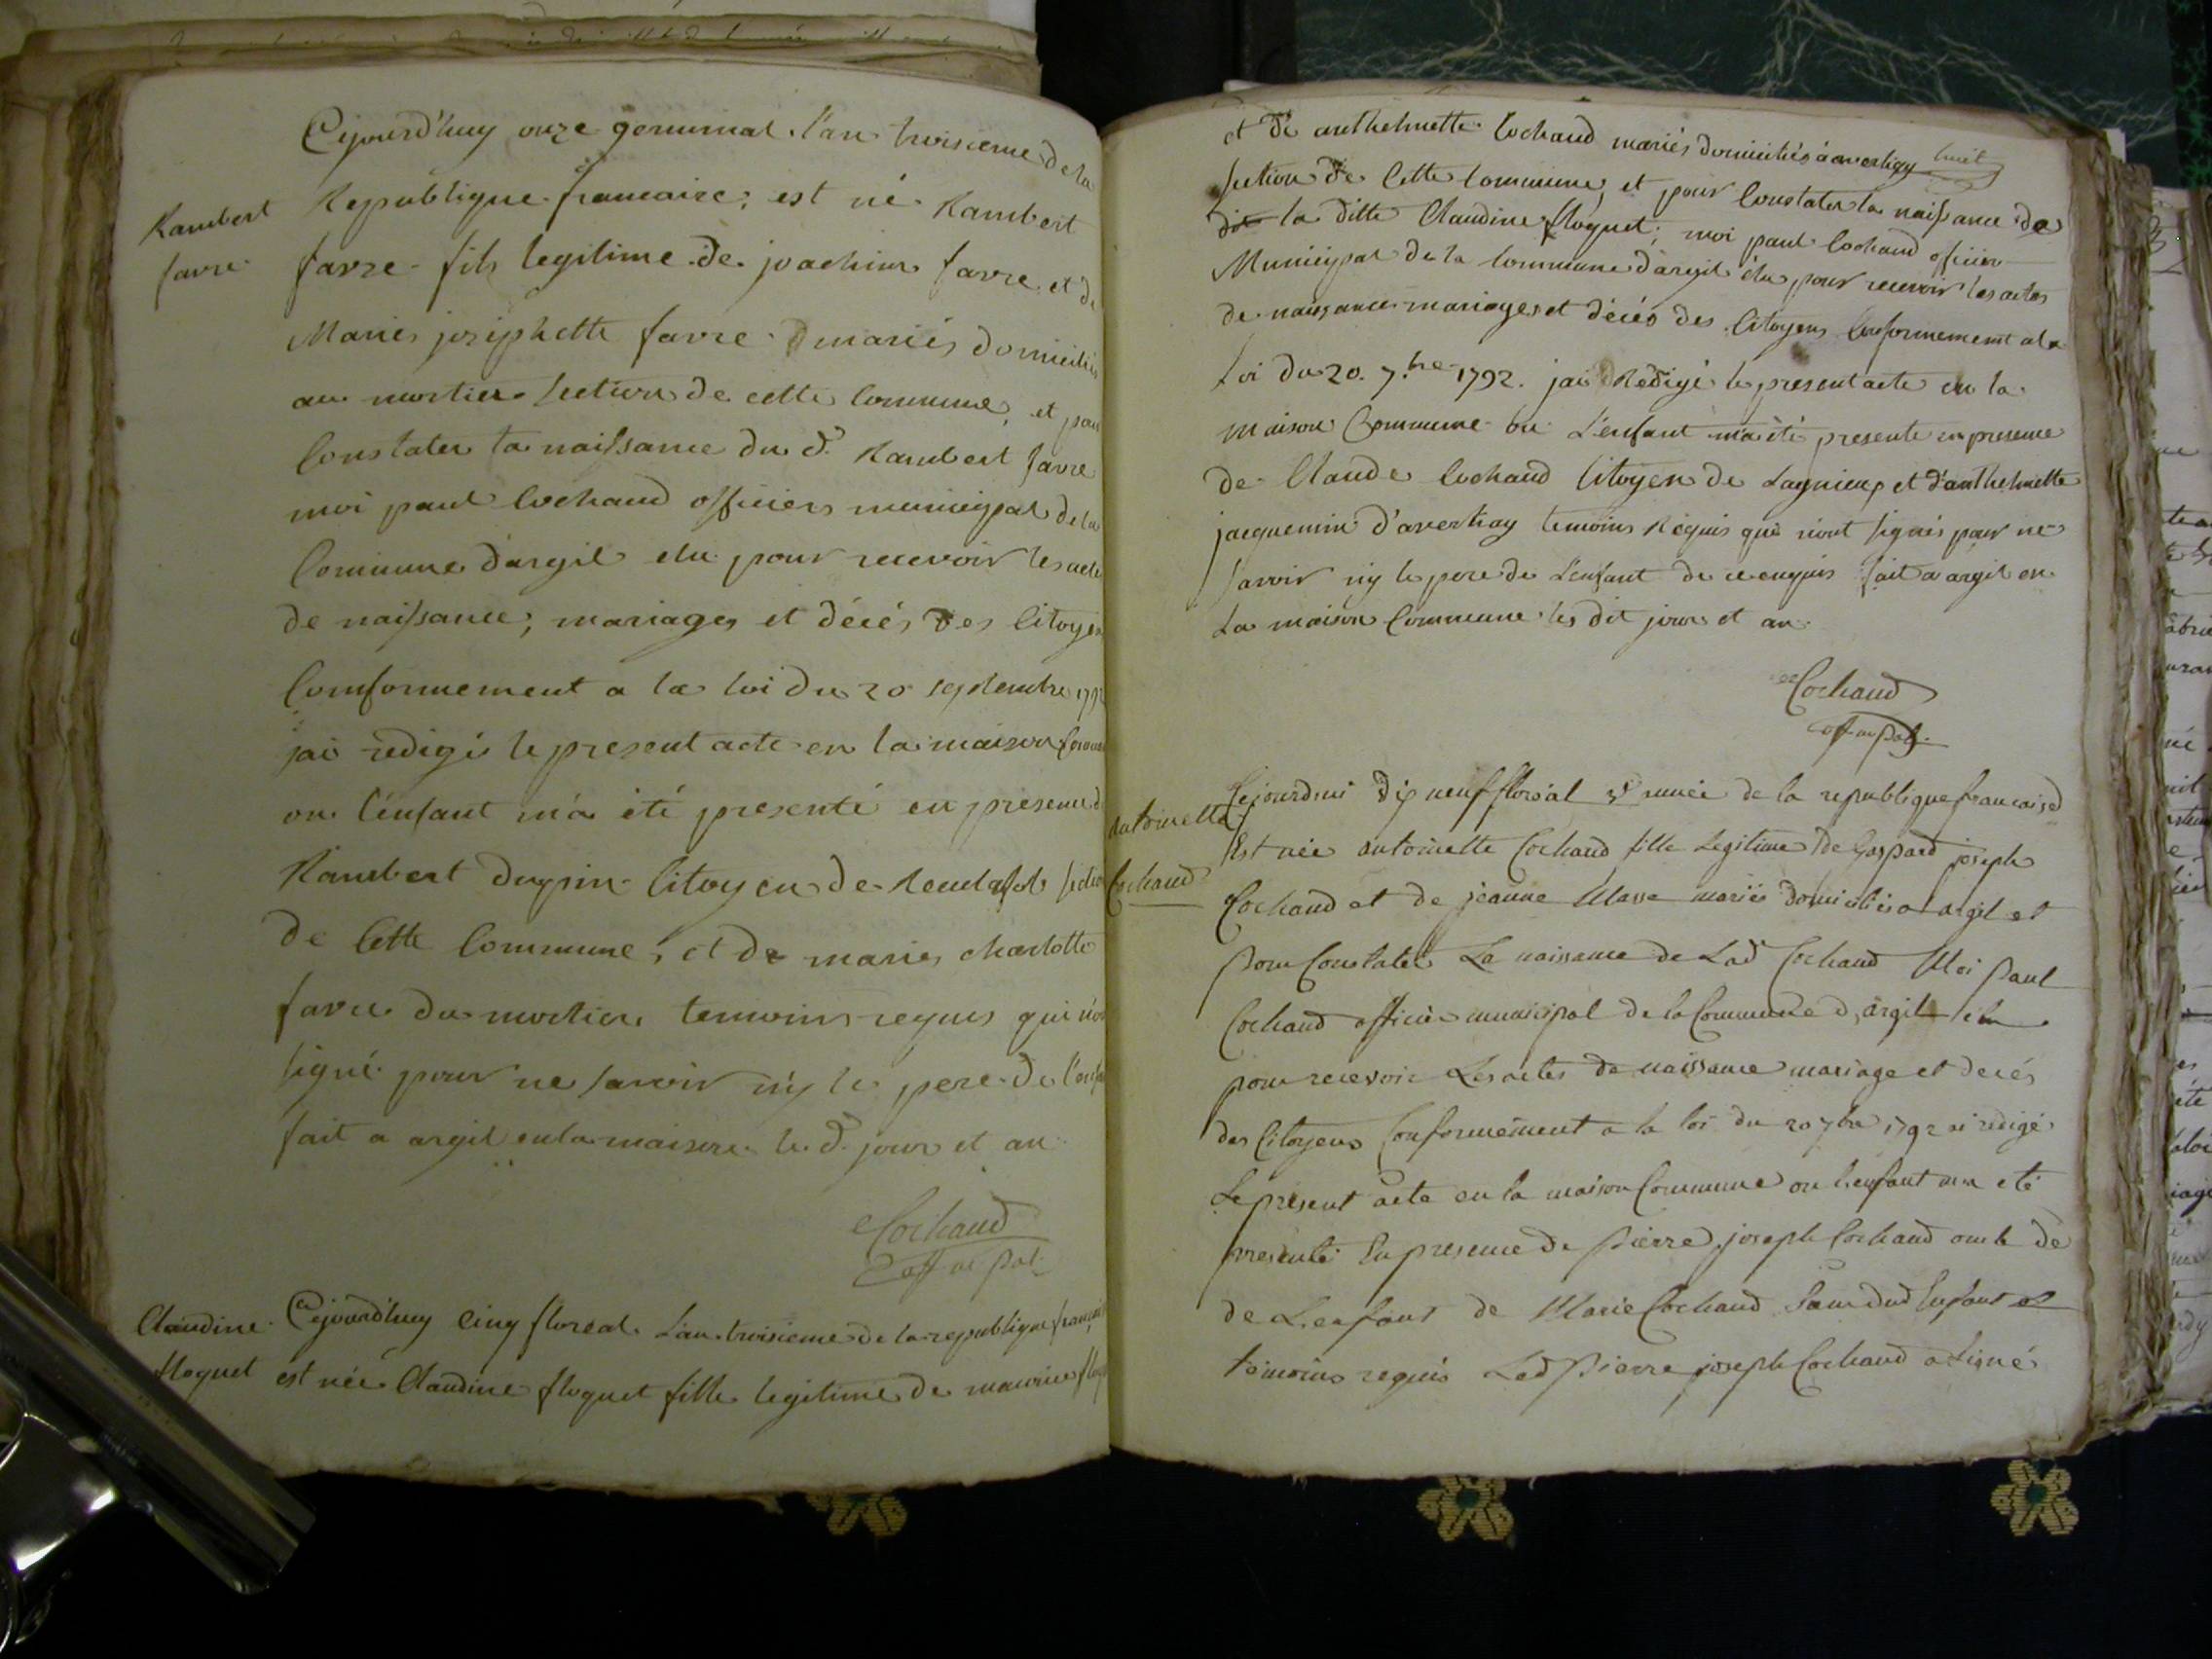 Cejourd'huy onze germinal l'an troisieme de la
Rambert
favre
Republique francaise, est né Rambert
favre fils legitime de joachim favre et de
Marie josephette favre mariés domiciliés
au mortier section de cette commune, et pour
Constater la naissance du d. Rambert favre
moi paul Cochaud officiers municipal de la
Commune d'argil elu pour recevoir les acte
de naissance, mariages et décés des Citoyen
Comformement a la loi du 20 septembre 1792
jai redigé le present acte en la maison
ou l'enfant m'a été presenté en presence d
Rambert dupin Citoyen de
de Cette Commune, et de marie charlotte
favre du mortier temoins requis qui n'ont
signé pour ne savoir n'y le pere de l'enfan
fait a argil en la maison le d. jour et an
Cochaud
off m pal
Claudine
floquet
Cejourd'huy cinq floreal l'an troisieme de la republique francais
est née Claudine floquet fille legitime de maurice floq
huit
et de anthelmette Cochaud mariés domiciliés a
section de Cette Commune, et pour Constater la naissance de
la ditte Claudine floquet, moi paul Cochaud officier
Municipal de la Commune d'argil élu pour recevoir les actes
de naissance mariages et décés des Citoyens Conformement a la
loi du 20. 7.bre 1792. jai Rédigé le present acte en la
maison Commune ou L'enfant m'a été presenté en presence
de Claude Cochaud Citoyen de Lagnieux et d'anthelmette
jacquemin d' temoins Requis qui n'ont signés pour ne
savoir n'y le pere de L'enfant de ce enquis fait a argil en
La maison Commune les dit jour et an
Cochaud
off m pal.
antoinette
Cochaud
Cejourdhui dix neuf floréal 3e année de la republique francaise
Est née antoinette Cochaud fille Legitime de Gaspard joseph
Cochaud et de jeanne Masse mariés domiciliés a argil et
pour Constater La naissance de Lad Cochaud Moi Paul
Cochaud officier municipal de la Commune d,argil élu
pour recevoir Les actes de naissance mariage et decés
des Citoyens Conformement a la loi du 20 7bre 1792 ai redigé
Le present acte en la maison Commune ou L'enfant m'a eté
presenté En presence de Pierre joseph Cochaud oncle de
de L'enfant de Marie Cochaud Enfant et
témoins requis Led Pierre joseph Cochaud a Signé